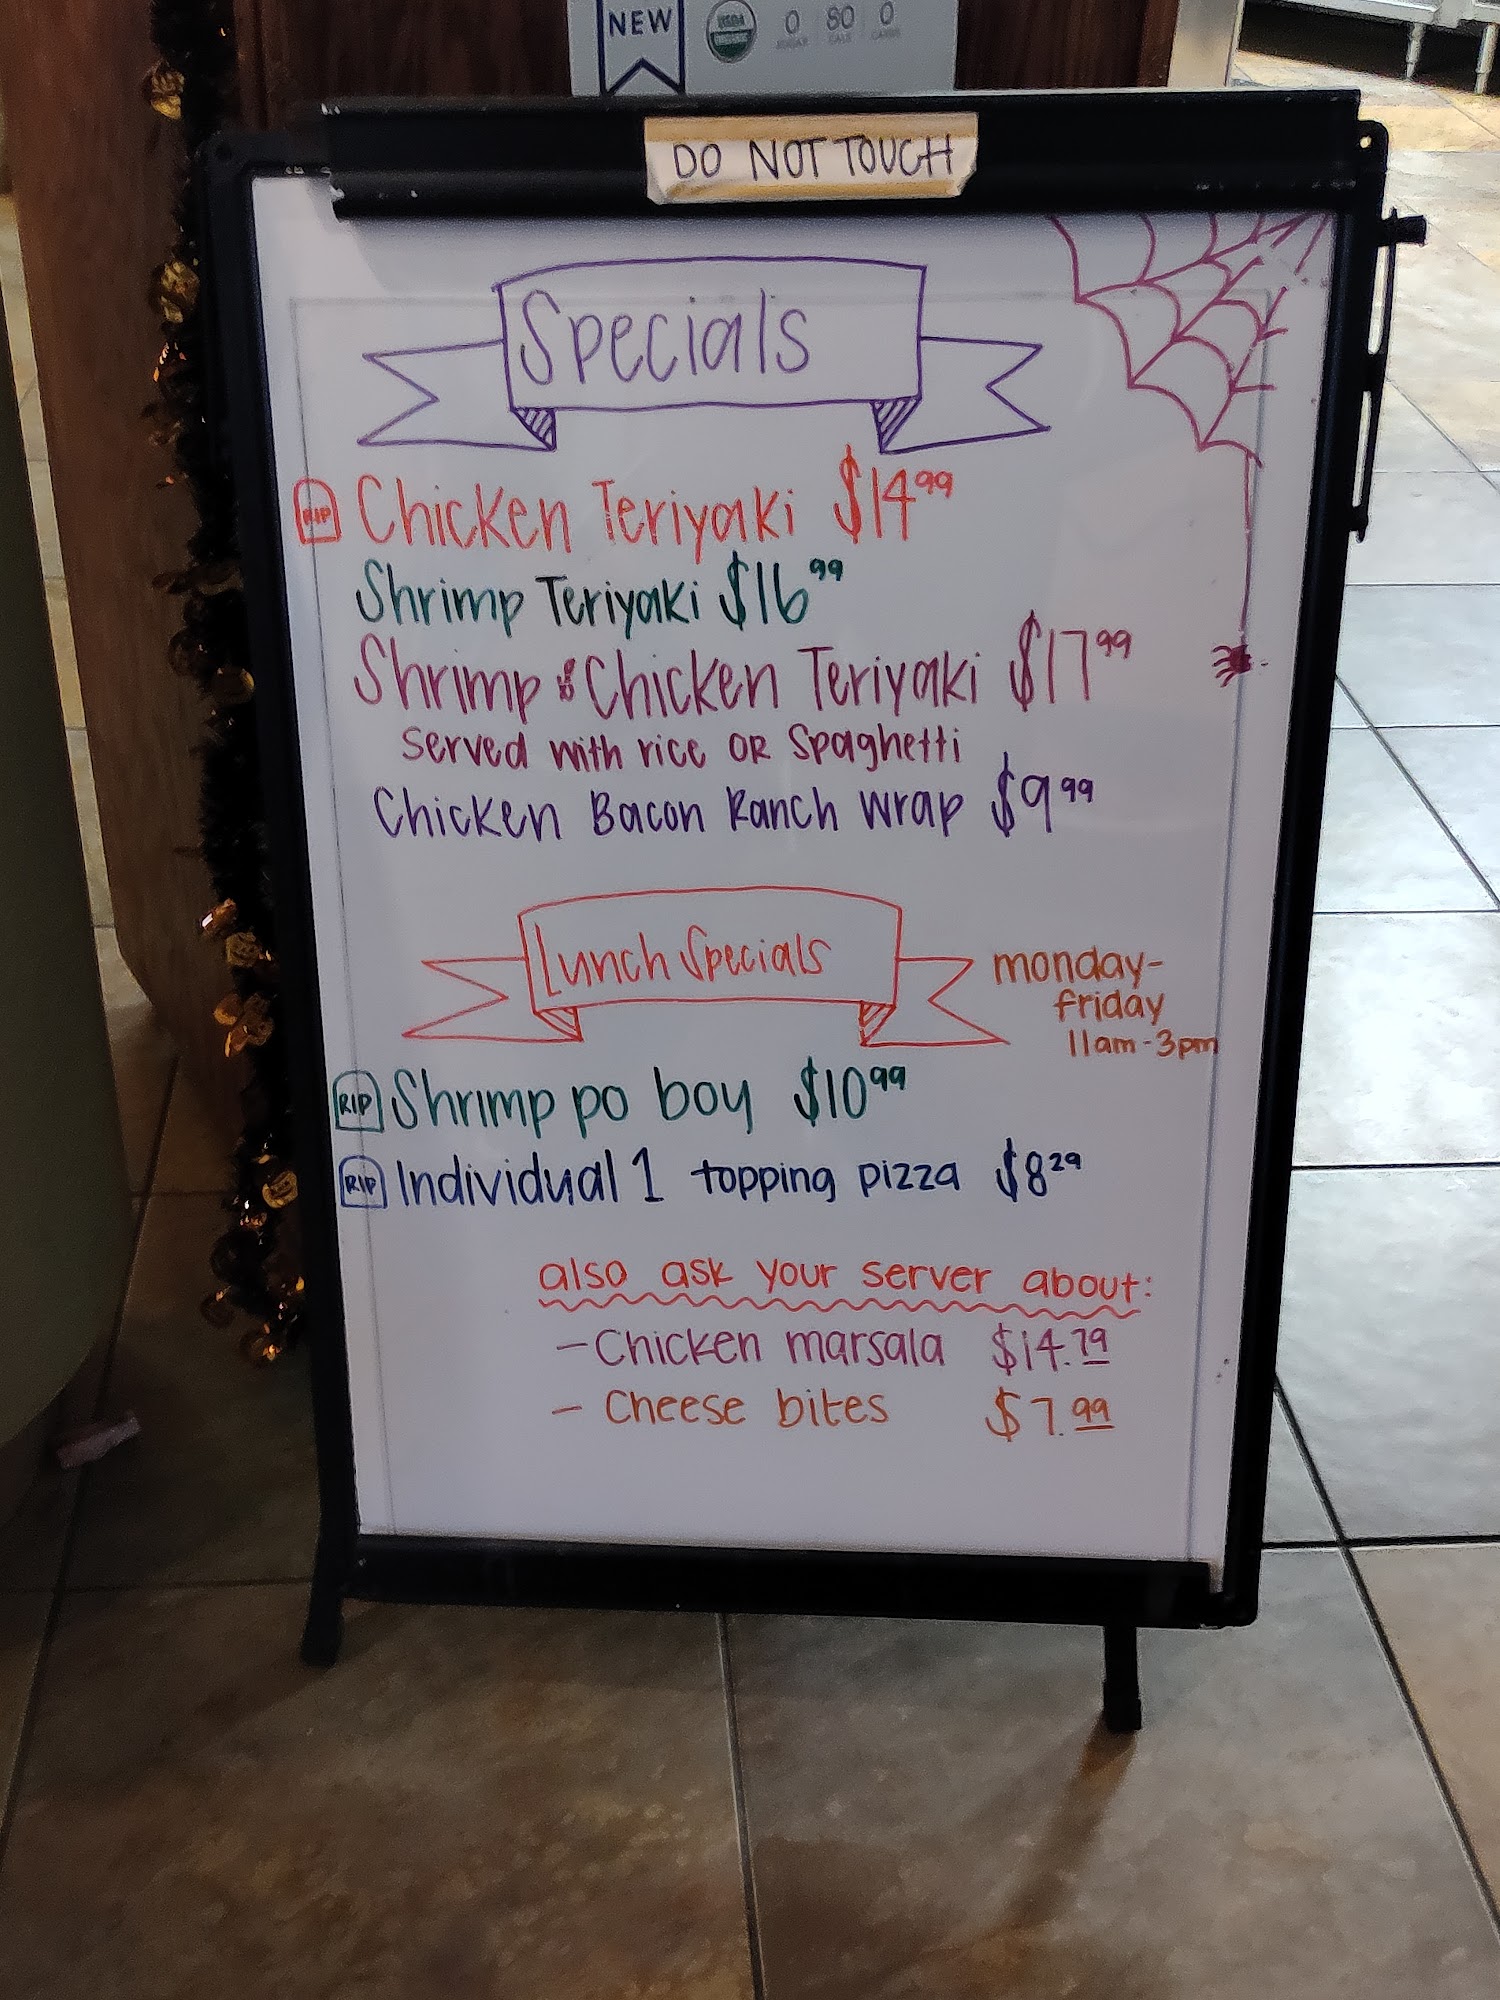 NEW
USDA ORGANIC
0 80 0
SUGAR CALS CARBS
DO NOT TOUCH
Specials
RIP Chicken Teriyaki $14.99
Shrimp Teriyaki $16.99
Shrimp & Chicken Teriyaki $17.99
served with rice OR Spaghetti
Chicken Bacon Ranch Wrap $9.99
Lunch Specials
monday-
friday
11am-3pm
RIP Shrimp po boy $10.99
RIP Individual 1 topping pizza $8.29
also ask your server about:
- Chicken marsala $14.79
- Cheese bites $7.99